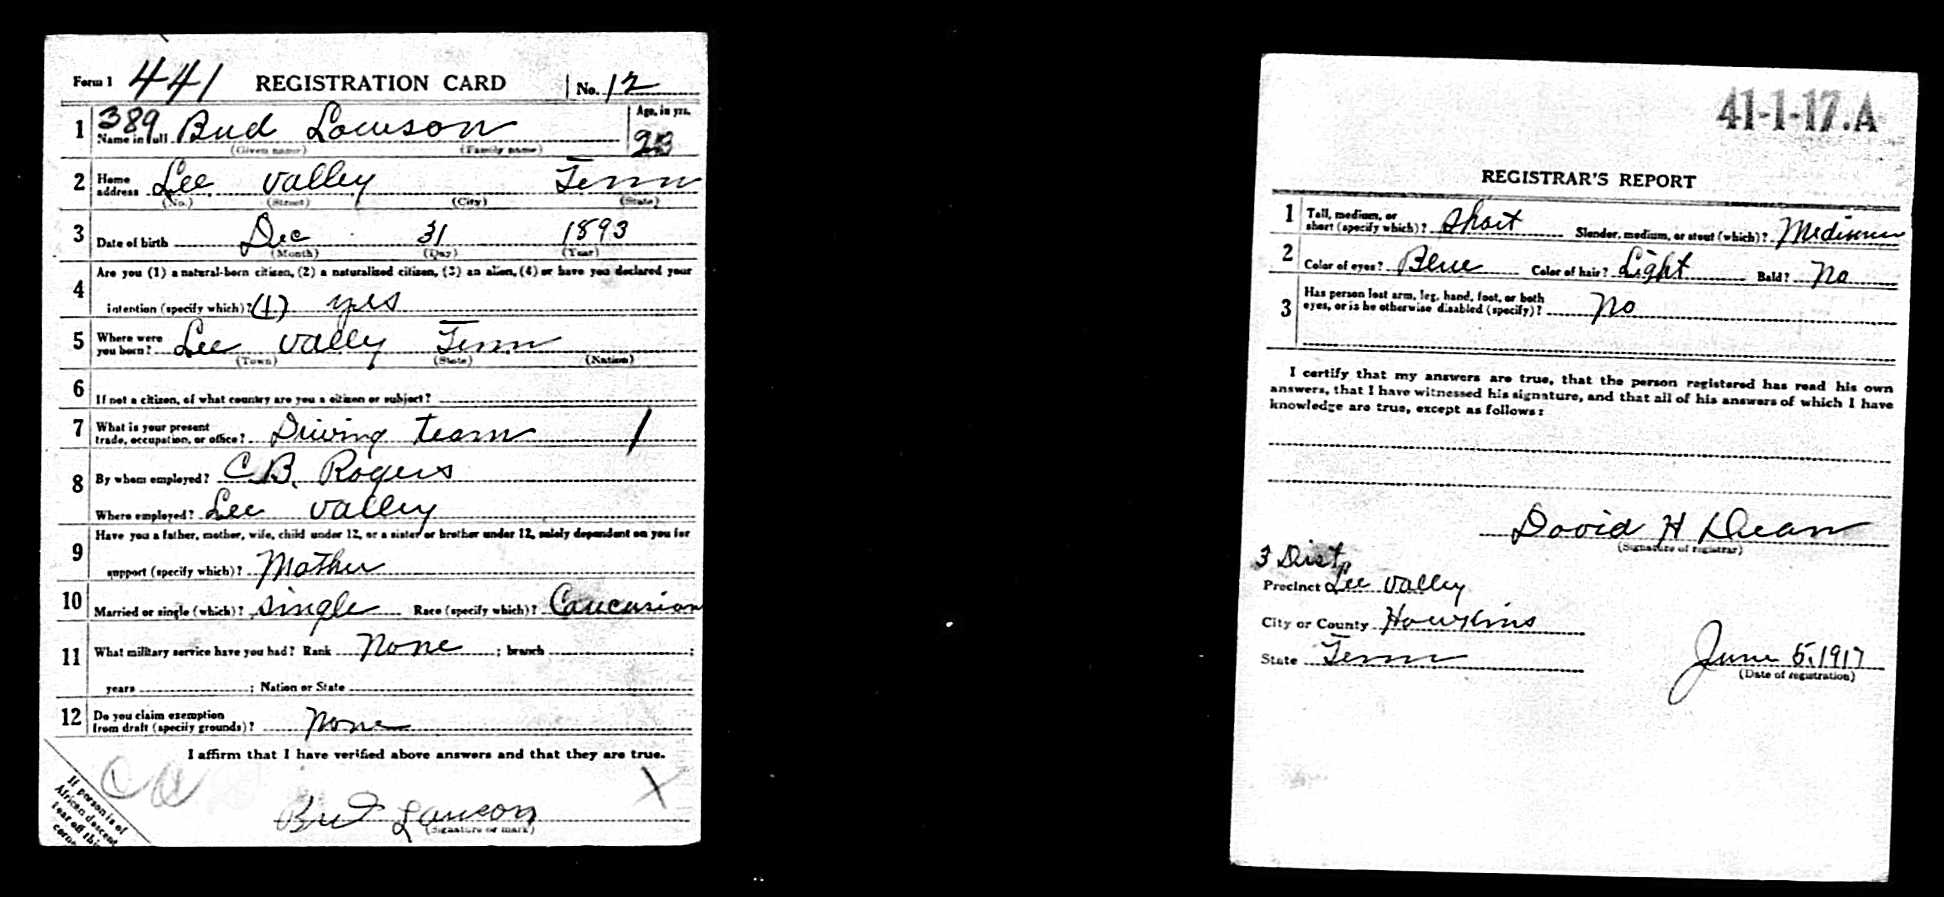 Form 1 441 REGISTRATION CARD No. 12
1 389 Name in full Bud Lawson Age, in yrs. 23
(Given name) (Family name)
2 Home address Lee Valley Tenn
(No.) (Street) (City) (State)
3 Date of birth Dec 31 1893
(Month) (Day) (Year)
4 Are you (1) a natural-born citizen, (2) a naturalized citizen, (3) an alien, (4) or have you declared your
intention (specify which)? (1) yes
5 Where were you born? Lee Valley Tenn
(Town) (State) (Nation)
6 If not a citizen, of what country are you a citizen or subject?
7 What is your present trade, occupation, or office? Driving team 1
8 By whom employed? C.B. Rogers
Where employed? Lee Valley
9 Have you a father, mother, wife, child under 12, or a sister or brother under 12, solely dependent on you for
support (specify which)? Mother
10 Married or single (which)? Single Race (specify which)? Caucasian
11 What military service have you had? Rank None ; branch ;
years ; Nation or State
12 Do you claim exemption from draft (specify grounds)? None
I affirm that I have verified above answers and that they are true.
X
Bud Lawson
(Signature or mark)
If person is of
African descent
tear off this
corner
41-1-17.A
REGISTRAR'S REPORT
1 Tall, medium, or short (specify which)? Short Slender, medium, or stout (which)? Medium
2 Color of eyes? Blue Color of hair? Light Bald? No
3 Has person lost arm, leg, hand, foot, or both eyes, or is he otherwise disabled (specify)? No
I certify that my answers are true, that the person registered has read his own
answers, that I have witnessed his signature, and that all of his answers of which I have
knowledge are true, except as follows:
David H Dean
(Signature of registrar)
3 Dist,
Precinct Lee Valley
City or County Hawkins
State Tenn
June 5, 1917
(Date of registration)